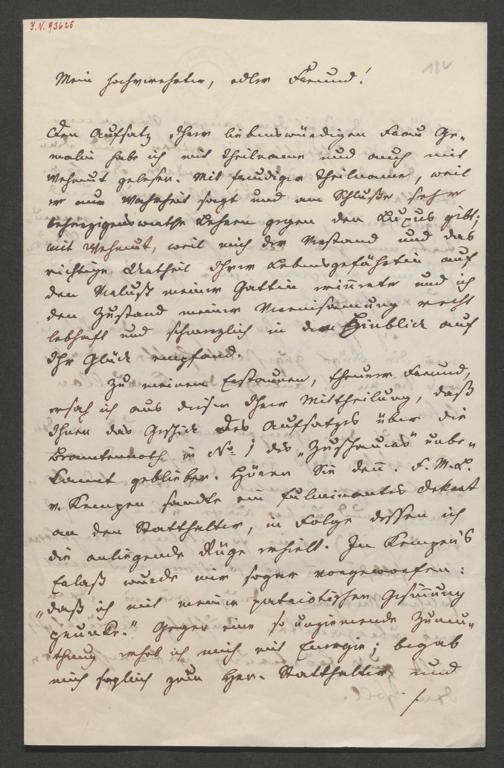 I. N. 93626
Mein hochverehrter, edler Freund!
Den Aufsatz Ihrer liebenswürdigen Frau Ge-
malin habe ich mit Theilname und auch mit
Wehmut gelesen. Mit freudiger Theilname, weil
er nur Wahrheit sagt und am Schluße sehr
beherzigenswerthe Lehren gegen den Luxus gibt;
mit Wehmut, weil mich der Verstand und das
richtige Urtheil Ihrer Lebensgefährtin auf
den Verlust meiner Gattin erinnerte und ich
den Zustand meiner Vereinsamung recht
lebhaft und schmerzlich in dem Hinblick auf
Ihr Glück empfand.
Zu meinem Erstaunen, theurer Freund,
ersah ich aus dieser Ihrer Mittheilung, daß
Ihnen das Geschick des Aufsatzes über die
Beamtennoth in No. 1 des „Zuschauers" unbe-
kannt geblieben. Hören Sie denn. F. M. L.
v. Kempen sandte ein fulminantes Dekret
an den Statthalter, in Folge dessen ich
die anliegende Rüge erhielt. In Kempen's
Erlaß wurde mir sogar vorgeworfen:
„daß ich mit meiner patriotischen Gesinnung
prunke." Gegen eine so unziemende Zumu-
thung erhob ich mich mit Energie; begab
mich sogleich zum Hrn. Statthalter und